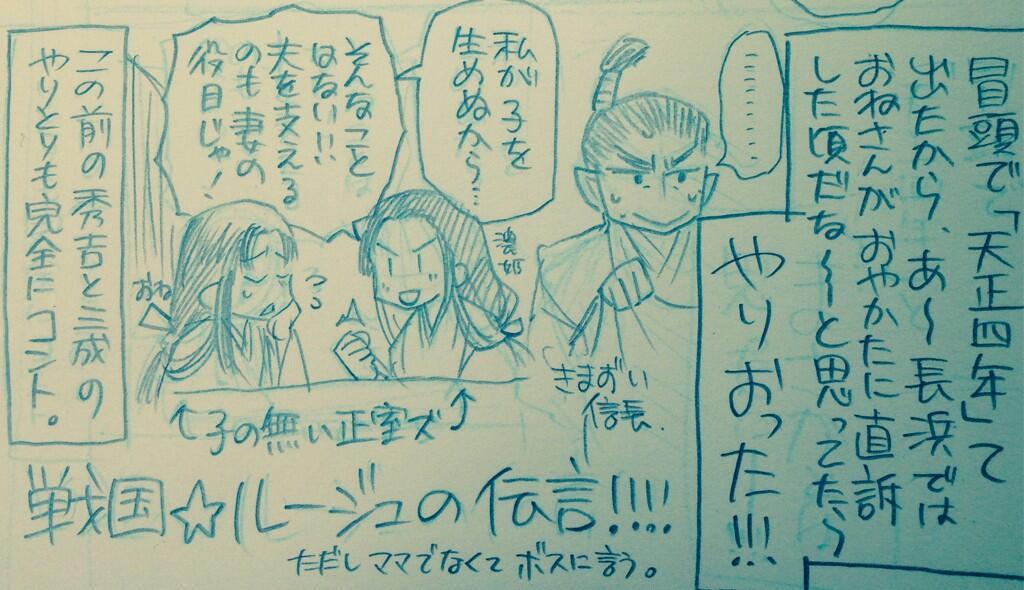 冒頭で「天正四年」て
出たから、あ〜長浜では
おねさんがおやかたに直訴
した頃だな〜と思ってたら
やりおった!!!
………
私が子を
生めぬから…
そんなこと
はない!!
夫を支える
のも妻の
役目じゃ!
濃姫
おね
うう
きまずい
信長.
↑子の無い正室ズ↑
この前の秀吉と三成の
やりとりも完全にコント。
戦国☆ルージュの伝言!!!!
ただしママでなくてボスに言う。